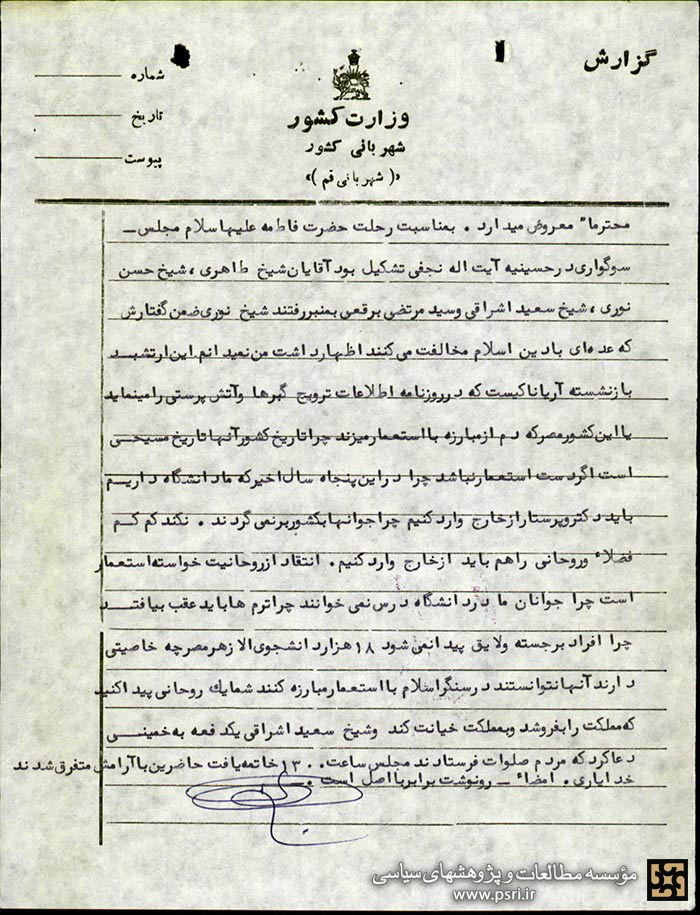 گزارش
شماره
تاریخ
پیوست
وزارت کشور
شهربانی کشور
«( شهربانی قم )»
محترما" معروض میدارد . بمناسبت رحلت حضرت فاطمه علیها سلام مجلس ــ
سوگواری در حسینیه آیت اله نجفی تشکیل بود آقایان شیخ طاهری ، شیخ حسن
نوری ، شیخ سعید اشراقی و سید مرتضی برقعی بمنبر رفتند شیخ نوری ضمن گفتارش
که عده‌ای با دین اسلام مخالفت می کنند اظهار داشت من نمیدانم این ارتشبد
بازنشسته آریانا کیست که در روزنامه اطلاعات ترویج گبرها و آتش پرستی را مینماید
یا این کشور مصر که دم از مبارزه با استعمار میزند چرا تاریخ کشور آنها تاریخ مسیحی
است اگر دست استعمار نباشد چرا در این پنجاه سال اخیر که ما دانشگاه داریم
باید دکتر و پرستار از خارج وارد کنیم چرا جوانها بکشور برنمی گردند . نکند کم کم
فضلاء و روحانی را هم باید از خارج وارد کنیم . انتقاد از روحانیت خواسته استعمار
است چرا جوانان ما در دانشگاه درس نمی خوانند چرا ترم ها باید عقب بیافتد
چرا افراد برجسته و لایق پیدا نمی شود ۱۸ هزار دانشجوی الازهر مصر چه خاصیتی
دارند آنها نتوانستند در سنگر اسلام با استعمار مبارزه کنند شما یك روحانی پیدا کنید
که مملکت را بفروشد و بمملکت خیانت کند و شیخ سعید اشراقی یکدفعه به خمینی
دعا کرد که مردم صلوات فرستادند مجلس ساعت ۱۳۰۰ خاتمه یافت حاضرین با آرامش متفرق شدند
خدایاری . امضاء ــ رونوشت برابر با اصل است .ــ
مؤسسه مطالعات و پژوهشهای سیاسی
www.psri.ir